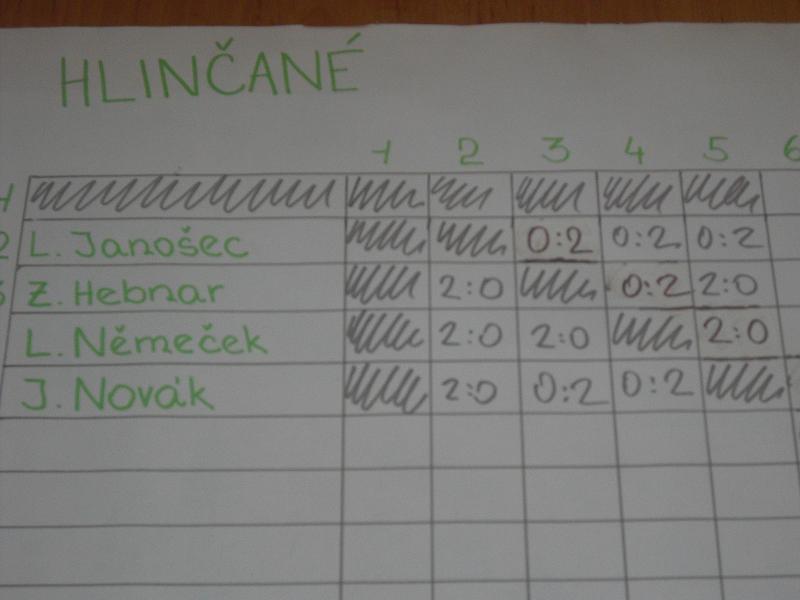 HLINČANÉ
1 2 3 4 5 6
1
2 L. Janošec 0:2 0:2 0:2
3 Z. Hebnar 2:0 0:2 2:0
L. Němeček 2:0 2:0 2:0
J. Novák 2:0 0:2 0:2